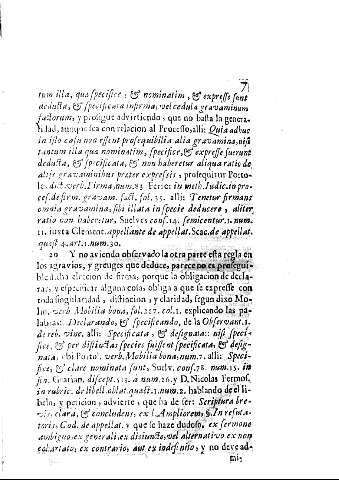 7
tum illa, quæ specifice, & nominatim, & expresse sunt
deducta, & specificata in firma, vel cedula gravaminum
factorum, y prosigue advirtiendo, que no basta la genera-
lidad, aunque sea con relacion al Processo, alli: Quia adhuc
in isto casu non essent prosequibilia alia gravamina, nisi
tantum illa quæ nominatim, specifice, & expresse fuerunt
deducta, & specificata, & non haberetur aliqua ratio de
alijs gravaminibus præter expressis, prosequitur Porto-
les dict. verb. Firma, num. 83. Ferrer in meth. Iudic. in pro-
ces. de firm. gravam. fact. fol. 35. alli: Tenetur firmans
omnia gravamina, sibi illata in specie deducere, aliter
ratio non haberetur, Suelves conf. 14. semicentur. 1. num.
11. juxta Clement. appellante de appellat. Scac. de appellat.
quæst. 4. art. 1. num. 30.
20 Y no aviendo observado la otra parte esta regla en
los agravios, y greuges que deduce, parece no es prosegui-
ble dicha eleccion de firma, porque la obligacion de decla-
rar, y especificar alguna cosa, obliga a que se expresse con
toda singularidad, distincion, y claridad, segun dixo Mo-
lin. verb. Mobilia bona, fol. 227. col. 1. explicando las pa-
labras: Declarando, & specificando, de la Observant. 1.
de reb. vinc. alli: Specificata, & designata: nisi speci-
fice, & per distinctas species fuissent specificata, & desig-
nata, ubi Portol. verb. Mobilia bona, num. 7. alli: Speci-
fice, & clare nominata sunt, Suelv. conf. 78. num. 15. in
fin. Gratian. discept. 513. à num. 26. y D. Nicolas Fermos.
in rubric. de libell. oblat. quæst. 1. num. 2. hablando de el li-
belo, y peticion, advierte, que ha de ser: Scriptura bre-
vis, clara, & concludens, ex l. Ampliorem, §. In refuta-
torijs, Cod. de appellat. y que se haze dudoso, ex sermone
ambiguo, ex generali, ex disiuncto, vel alternativo ex non
equartato, ex contrario, aut ex indefinito, y no deve ad-
mi-